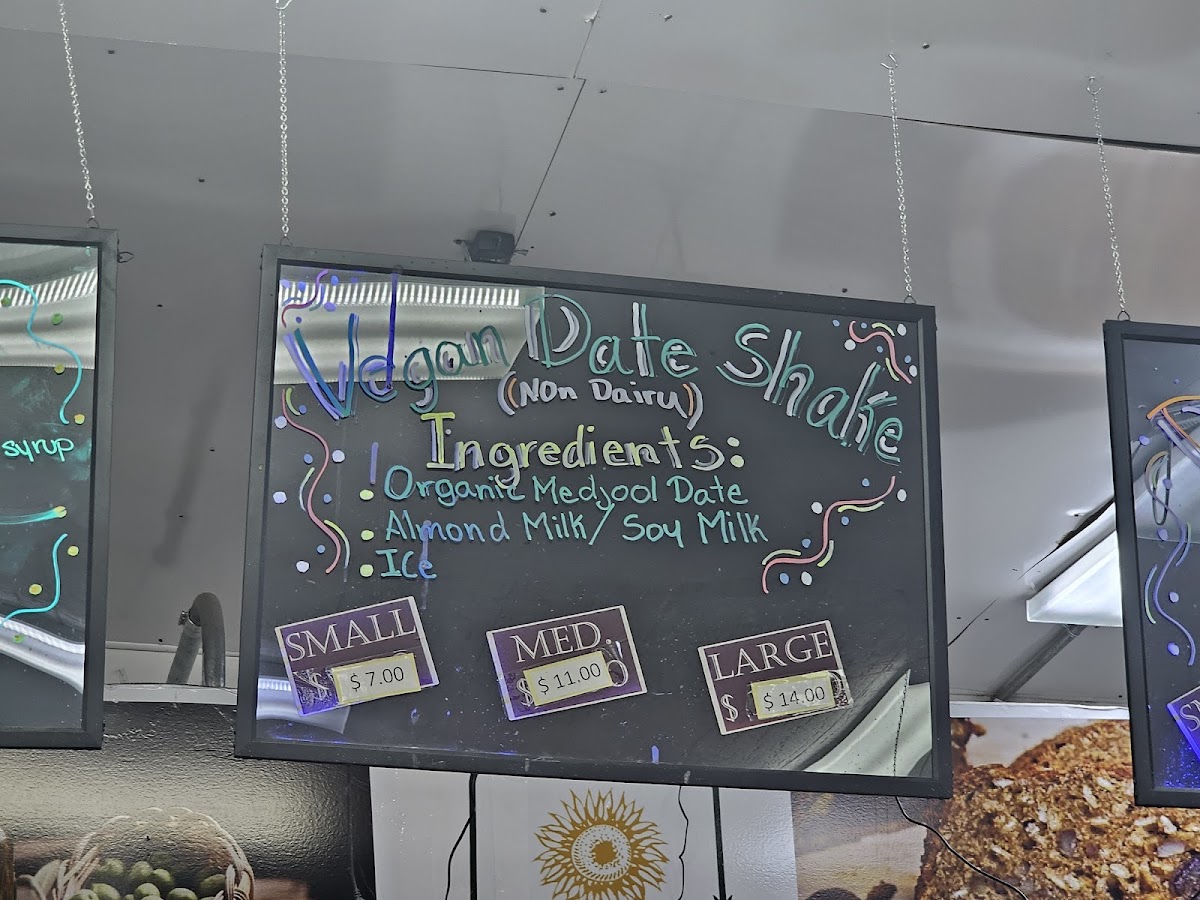 Vegan Date Shake
(Non Dairy)
Ingredients:
Organic Medjool Date
Almond Milk/ Soy Milk
ICe
SMALL
$ $7.00
MED.
$ $11.00
LARGE
$ $14.00
syrup